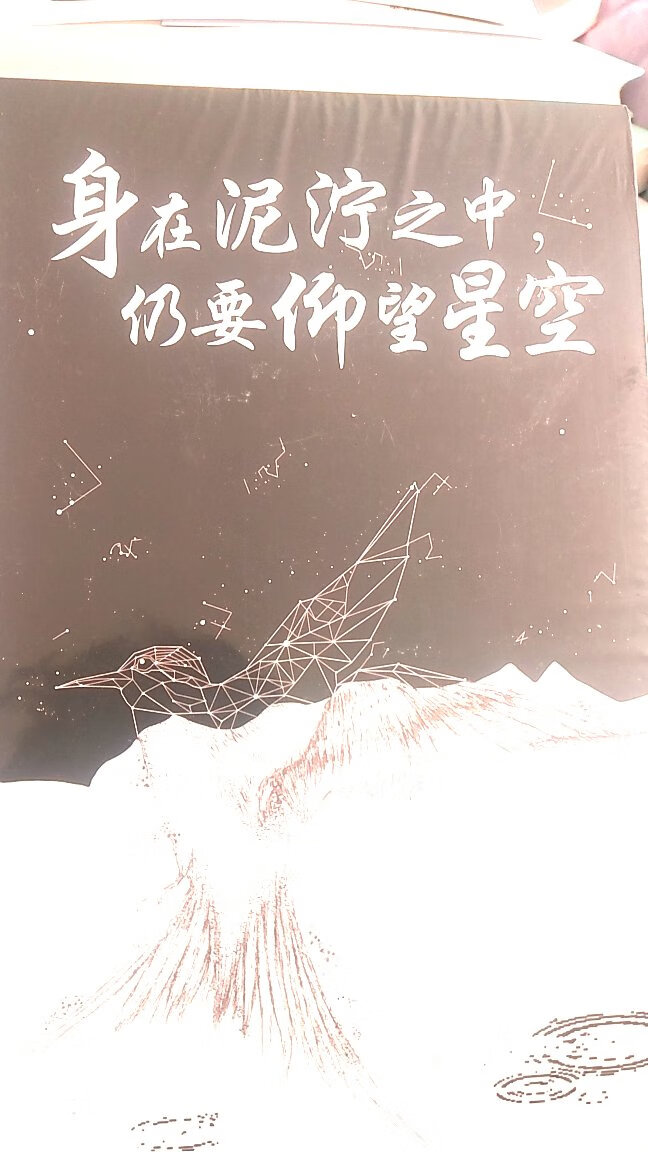 身在泥泞之中，
仍要仰望星空